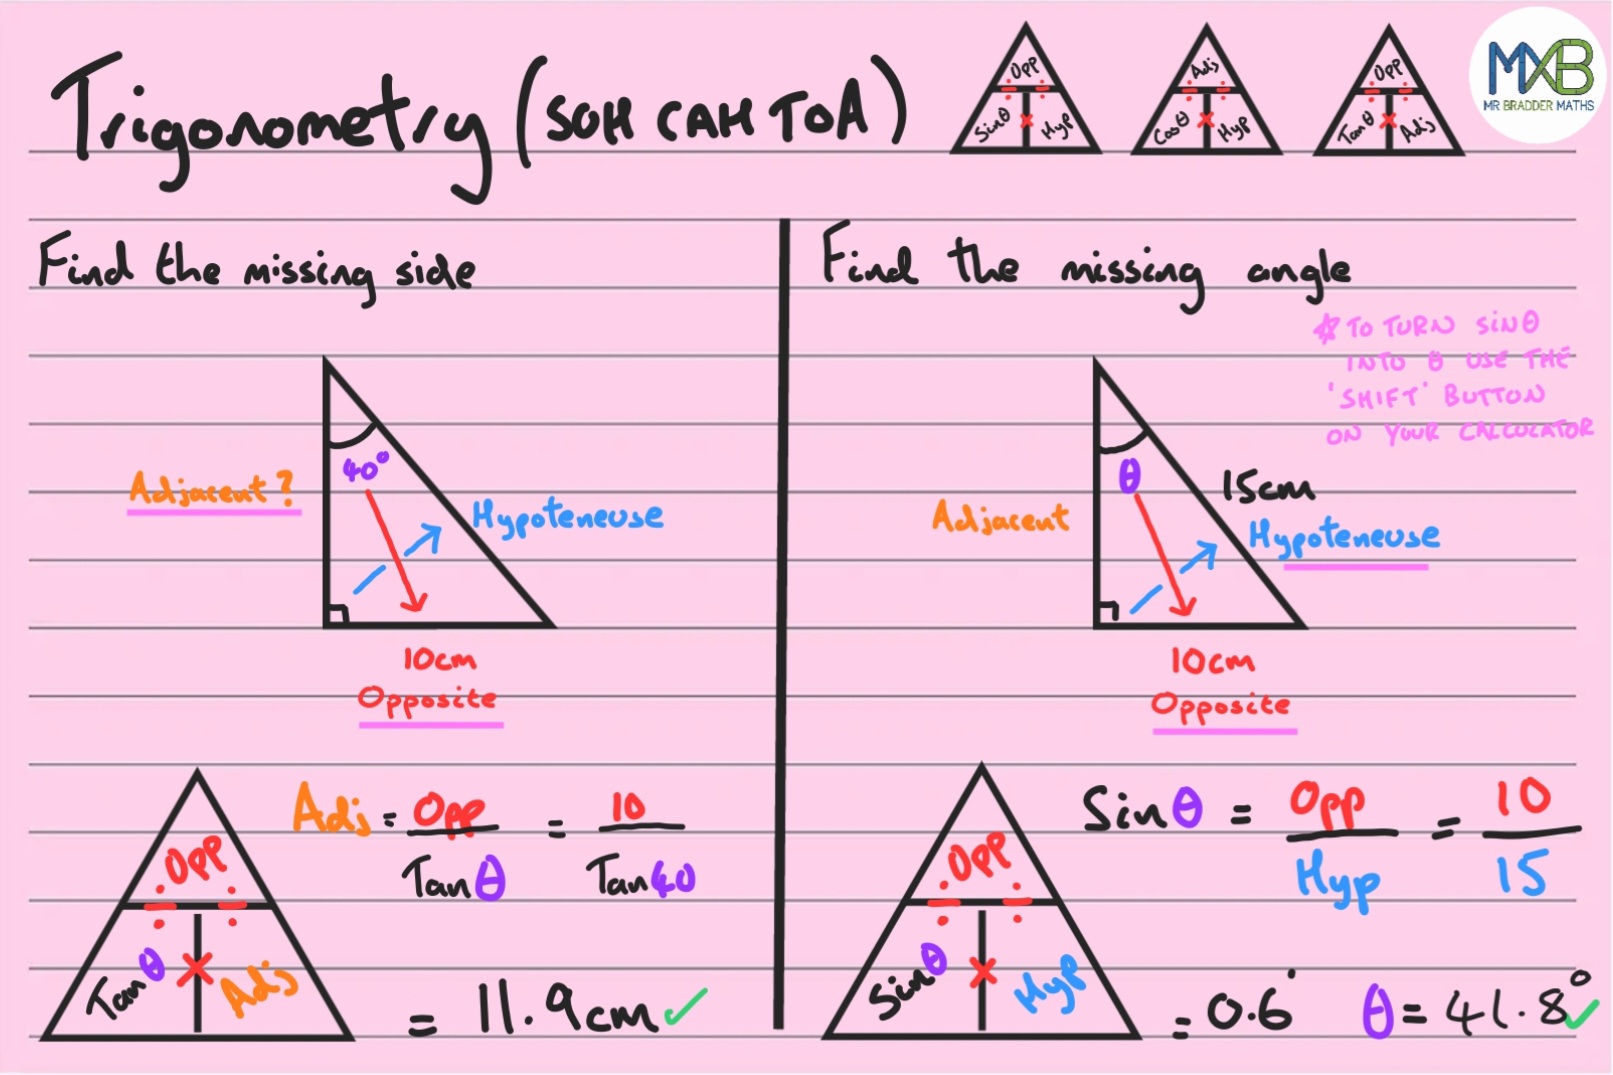 Trigonometry (SOH CAH TOA)
Opp
Sinθ × Hyp
Adj
Cosθ × Hyp
Opp
Tanθ × Adj
MXB
MR BRADDER MATHS
Find the missing side
40°
Adjacent?
Hypoteneuse
10cm
Opposite
Opp
Tanθ × Adj
Adj = Opp/Tanθ = 10/Tan40
= 11.9cm ✓
Find the missing angle
☆ TO TURN SINθ
INTO θ USE THE
'SHIFT' BUTTON
ON YOUR CALCULATOR
θ
15cm
Adjacent
Hypoteneuse
10cm
Opposite
Opp
Sinθ × Hyp
Sinθ = Opp/Hyp = 10/15
= 0.6̇ θ = 41.8° ✓